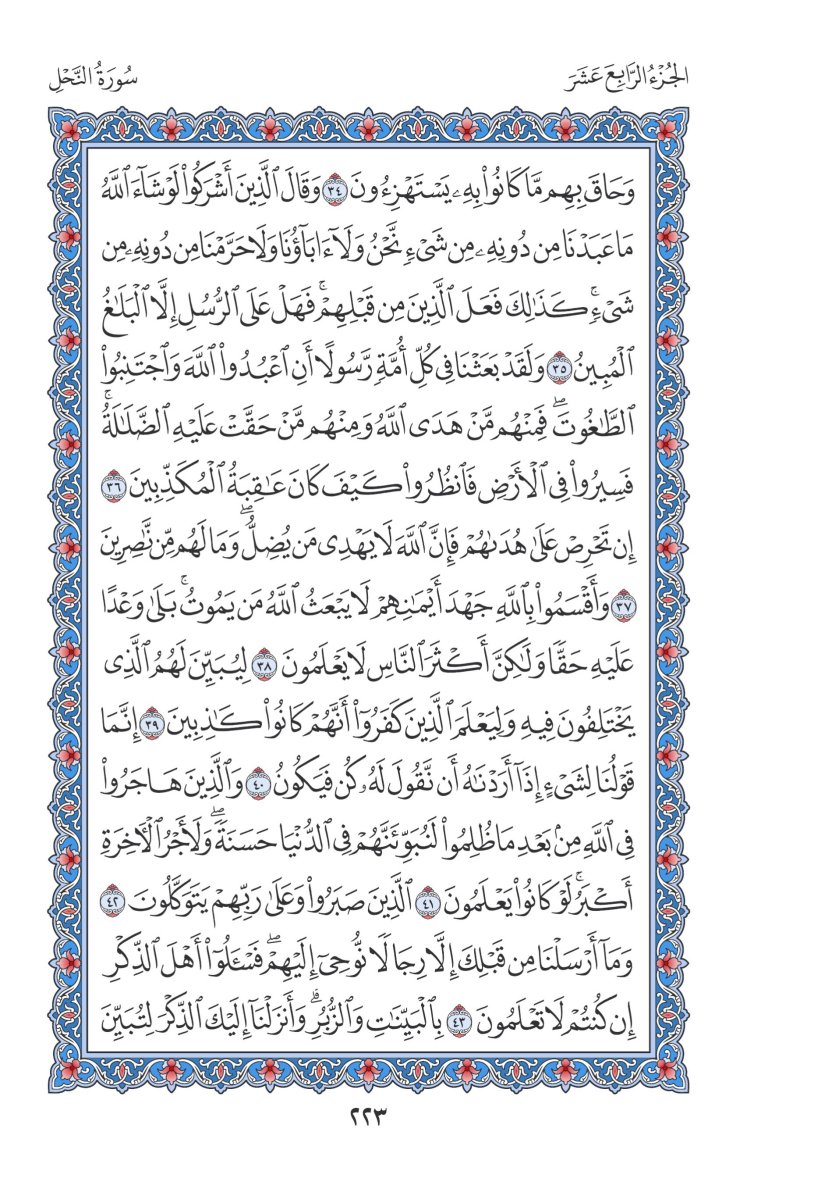 الجُزْءُ الرَّابِعَ عَشَرَ
سُورَةُ النَّحْلِ
وَحَاقَ بِهِم مَّا كَانُوا۟ بِهِۦ يَسْتَهْزِءُونَ ٣٤ وَقَالَ ٱلَّذِينَ أَشْرَكُوا۟ لَوْ شَآءَ ٱللَّهُ
مَا عَبَدْنَا مِن دُونِهِۦ مِن شَىْءٍ نَّحْنُ وَلَآ ءَابَآؤُنَا وَلَا حَرَّمْنَا مِن دُونِهِۦ مِن
شَىْءٍ ۚ كَذَٰلِكَ فَعَلَ ٱلَّذِينَ مِن قَبْلِهِمْ ۚ فَهَلْ عَلَى ٱلرُّسُلِ إِلَّا ٱلْبَلَـٰغُ
ٱلْمُبِينُ ٣٥ وَلَقَدْ بَعَثْنَا فِى كُلِّ أُمَّةٍ رَّسُولًا أَنِ ٱعْبُدُوا۟ ٱللَّهَ وَٱجْتَنِبُوا۟
ٱلطَّـٰغُوتَ ۖ فَمِنْهُم مَّنْ هَدَى ٱللَّهُ وَمِنْهُم مَّنْ حَقَّتْ عَلَيْهِ ٱلضَّلَـٰلَةُ ۚ
فَسِيرُوا۟ فِى ٱلْأَرْضِ فَٱنظُرُوا۟ كَيْفَ كَانَ عَـٰقِبَةُ ٱلْمُكَذِّبِينَ ٣٦
إِن تَحْرِصْ عَلَىٰ هُدَىٰهُمْ فَإِنَّ ٱللَّهَ لَا يَهْدِى مَن يُضِلُّ ۖ وَمَا لَهُم مِّن نَّـٰصِرِينَ
٣٧ وَأَقْسَمُوا۟ بِٱللَّهِ جَهْدَ أَيْمَـٰنِهِمْ لَا يَبْعَثُ ٱللَّهُ مَن يَمُوتُ ۚ بَلَىٰ وَعْدًا
عَلَيْهِ حَقًّا وَلَـٰكِنَّ أَكْثَرَ ٱلنَّاسِ لَا يَعْلَمُونَ ٣٨ لِيُبَيِّنَ لَهُمُ ٱلَّذِى
يَخْتَلِفُونَ فِيهِ وَلِيَعْلَمَ ٱلَّذِينَ كَفَرُوٓا۟ أَنَّهُمْ كَانُوا۟ كَـٰذِبِينَ ٣٩ إِنَّمَا
قَوْلُنَا لِشَىْءٍ إِذَآ أَرَدْنَـٰهُ أَن نَّقُولَ لَهُۥ كُن فَيَكُونُ ٤٠ وَٱلَّذِينَ هَاجَرُوا۟
فِى ٱللَّهِ مِنۢ بَعْدِ مَا ظُلِمُوا۟ لَنُبَوِّئَنَّهُمْ فِى ٱلدُّنْيَا حَسَنَةً ۖ وَلَأَجْرُ ٱلْـَٔاخِرَةِ
أَكْبَرُ ۚ لَوْ كَانُوا۟ يَعْلَمُونَ ٤١ ٱلَّذِينَ صَبَرُوا۟ وَعَلَىٰ رَبِّهِمْ يَتَوَكَّلُونَ ٤٢
وَمَآ أَرْسَلْنَا مِن قَبْلِكَ إِلَّا رِجَالًا نُّوحِىٓ إِلَيْهِمْ ۖ فَسْـَٔلُوٓا۟ أَهْلَ ٱلذِّكْرِ
إِن كُنتُمْ لَا تَعْلَمُونَ ٤٣ بِٱلْبَيِّنَـٰتِ وَٱلزُّبُرِ ۗ وَأَنزَلْنَآ إِلَيْكَ ٱلذِّكْرَ لِتُبَيِّنَ
٢٢٣